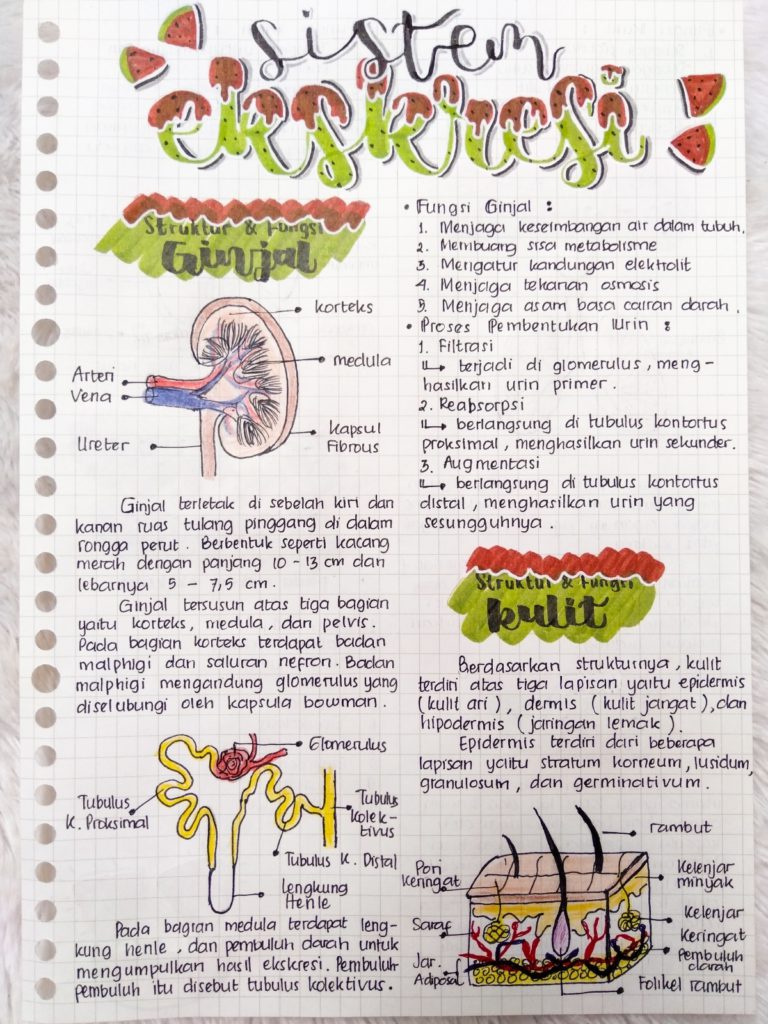 sistem
ekskresi
Struktur & Fungsi
Ginjal
korteks
medula
Arteri
Vena
Ureter
kapsul
Fibrous
Ginjal terletak di sebelah kiri dan
kanan ruas tulang pinggang di dalam
rongga perut. Berbentuk seperti kacang
merah dengan panjang 10 - 13 cm dan
lebarnya 5 - 7,5 cm.
Ginjal tersusun atas tiga bagian
yaitu korteks, medula, dan pelvis.
Pada bagian korteks terdapat badan
malphigi dan saluran nefron. Badan
malphigi mengandung glomerulus yang
diselubungi oleh kapsula bowman.
Glomerulus
Tubulus
K. Proksimal
Tubulus
kolek-
tivus
Tubulus K. Distal
Lengkung
Henle
Pada bagian medula terdapat leng-
kung henle, dan pembuluh darah untuk
mengumpulkan hasil ekskresi. Pembuluh-
pembuluh itu disebut tubulus kolektivus.
• Fungsi Ginjal :
1. Menjaga keseimbangan air dalam tubuh.
2. Membuang sisa metabolisme
3. Mengatur kandungan elektrolit
4. Menjaga tekanan osmosis
5. Menjaga asam basa cairan darah.
• Proses Pembentukan Urin :
1. Filtrasi
↳ terjadi di glomerulus, meng-
hasilkan urin primer.
2. Reabsorpsi
↳ berlangsung di tubulus kontortus
proksimal, menghasilkan urin sekunder.
3. Augmentasi
↳ berlangsung di tubulus kontortus
distal, menghasilkan urin yang
sesungguhnya.
Struktur & Fungsi
kulit
Berdasarkan strukturnya, kulit
terdiri atas tiga lapisan yaitu epidermis
(kulit ari), dermis (kulit jangat), dan
hipodermis (jaringan lemak).
Epidermis terdiri dari beberapa
lapisan yaitu stratum korneum, lusidum,
granulosum, dan germinativum.
rambut
Pori
Keringat
Kelenjar
minyak
Saraf
Kelenjar
Keringat
Jar.
Adiposal
Pembuluh
darah
Folikel rambut